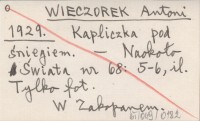 WIECZOREK Antoni
1929. Kapliczka pod
śniegiem. — Naokoło
Świata nr 68: 5-6, il.
Tylko fot.
W Zakopanem.